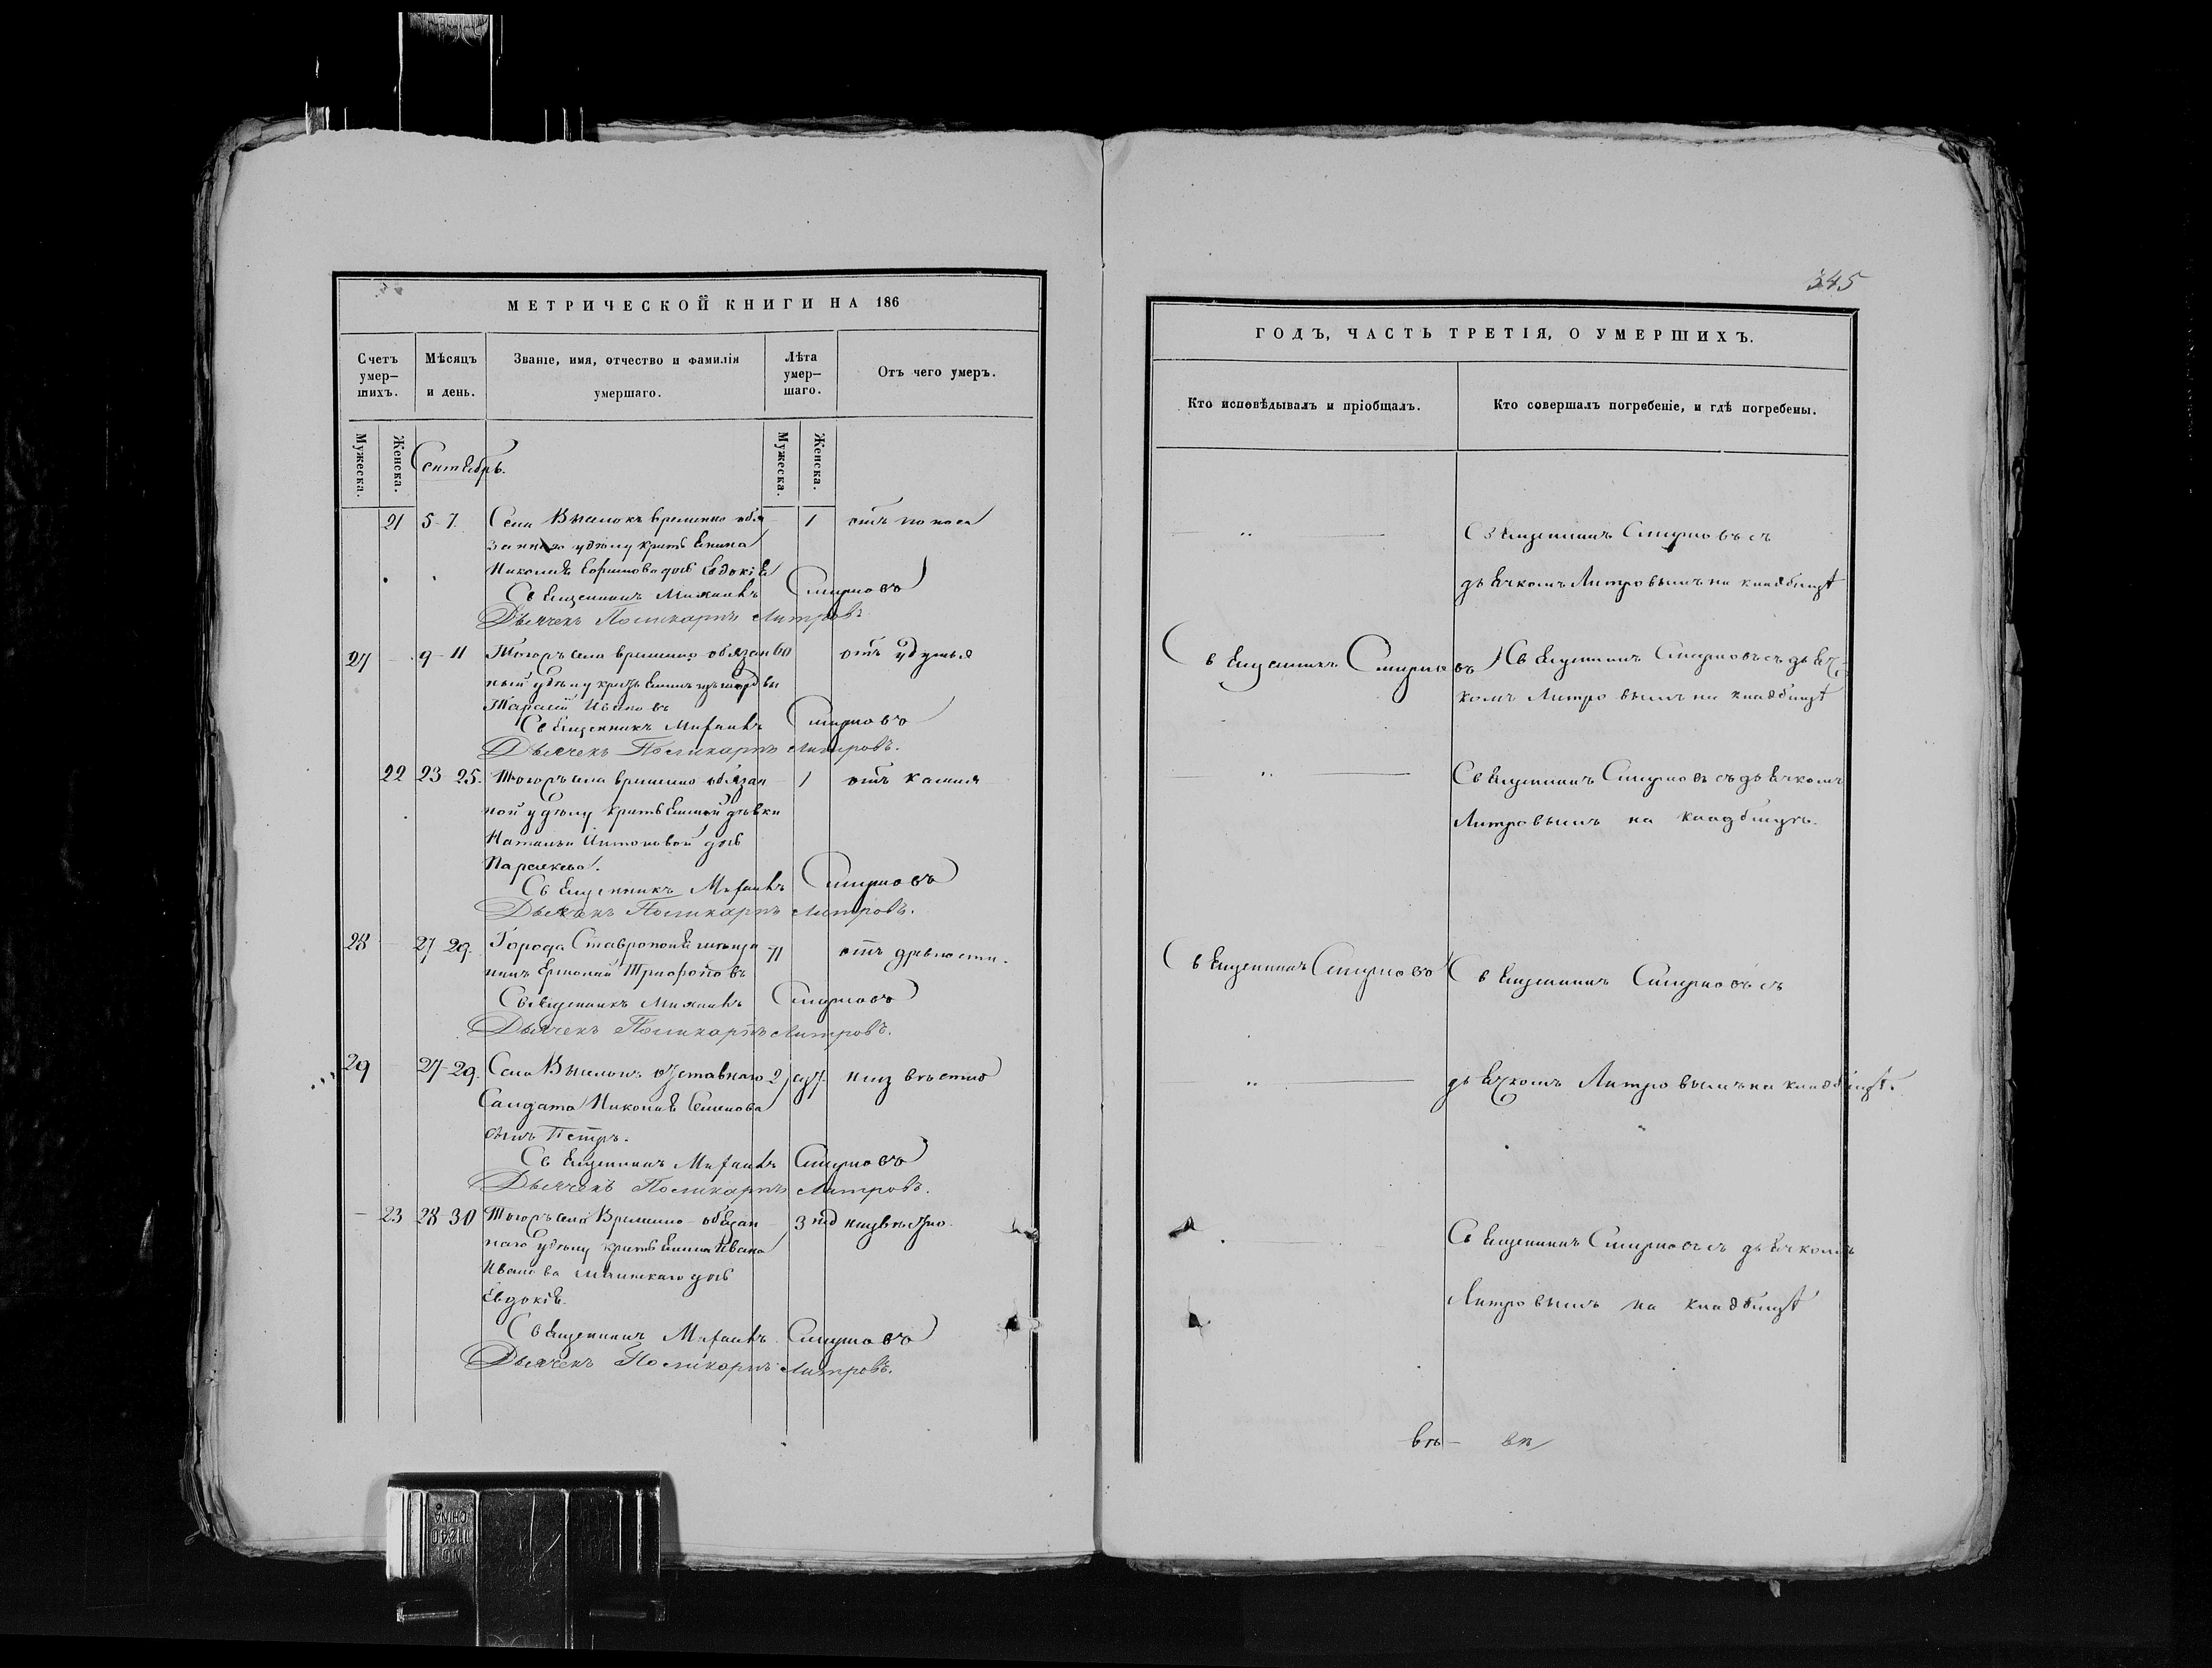 345
МЕТРИЧЕСКОЙ КНИГИ НА 186
Счетъ умер—шихъ.
Мѣсяцъ и день.
Званіе, имя, отчество и фамилія умершаго.
Лѣта умер—шаго.
Отъ чего умеръ.
Мужеска.
Женска.
Сентябрь.
Мужеска.
Женска.
21 5-7. Села Выселокъ временно обя 1 отъ поноса
заннаго удѣлу крестьянина
Николая Ефимова дочь Евдокія
Священникъ Михаилъ Смирновъ
Дьячекъ Поликарпъ Литровъ.
27 9-11 Тогожъ села временно обязан 60 отъ удушья
ный удѣлу крестьянинъ
Тарасій Ивановъ
Священникъ Михаилъ Смирновъ
Дьячекъ Поликарпъ Литровъ.
22 23-25. Тогожъ села временно обязан 1 отъ кашля
ной удѣлу крестьянской дѣвки
Натальи Антоновой дочь
Параскева.
Священникъ Михаилъ Смирновъ
Дьячекъ Поликарпъ Литровъ.
28 27-29. Города Ставрополя мѣща 71 отъ древности.
нинъ Ермолай Трифоновъ
Священникъ Михаилъ Смирновъ
Дьячекъ Поликарпъ Литровъ.
29 27-29. Села Выселокъ отставнаго 2
Салдата Николая Семенова
сынъ Петръ.
Священникъ Михаилъ Смирновъ
Дьячекъ Поликарпъ Литровъ.
23 28-30 Тогожъ села Временно-обязан 3 нед неизвѣстно.
наго удѣлу крестьянина Ивана
Иванова дочь
Евдокія.
Священникъ Михаилъ Смирновъ
Дьячекъ Поликарпъ Литровъ.
ГОДЪ, ЧАСТЬ ТРЕТІЯ, О УМЕРШИХЪ.
Кто исповѣдывалъ и пріобщалъ.
Кто совершалъ погребеніе, и гдѣ погребены.
Священникъ Смирновъ съ
дьячкомъ Литровымъ на кладбищѣ
Священникъ Смирновъ Священникъ Смирновъ съ дьяч-
комъ Литровымъ на кладбищѣ
Священникъ Смирновъ съ дьячкомъ
Литровымъ на кладбищѣ.
Священникъ Смирновъ Священникъ Смирновъ съ
дьячкомъ Литровымъ на кладбищѣ.
Священникъ Смирновъ съ дьячкомъ
Литровымъ на кладбищѣ